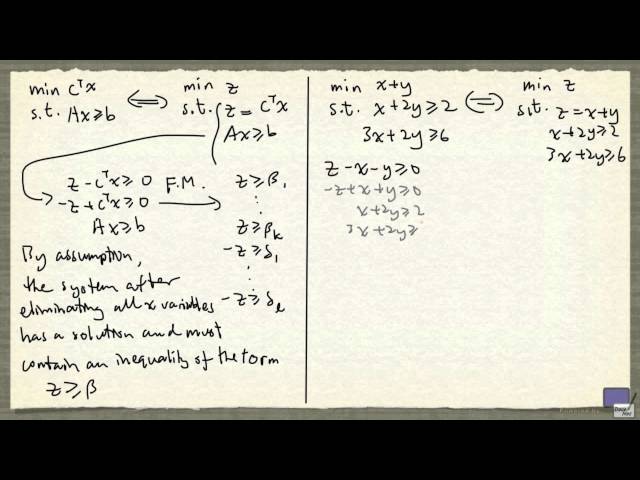 min cᵀx ⟺ min z
s.t. Ax ≥ b s.t. { z = cᵀx
Ax ≥ b
z - cᵀx ≥ 0 F.M. z ≥ β₁
-z + cᵀx ≥ 0 ⋮
Ax ≥ b z ≥ βₖ
-z ≥ δ₁
⋮
-z ≥ δₗ
By assumption,
the system after
eliminating all x variables
has a solution and must
contain an inequality of the form
z ≥ β
min x+y ⟺ min z
s.t. x+2y ≥ 2 s.t. z = x+y
3x+2y ≥ 6 x+2y ≥ 2
3x+2y ≥ 6
z-x-y ≥ 0
-z+x+y ≥ 0
x+2y ≥ 2
3x+2y ≥